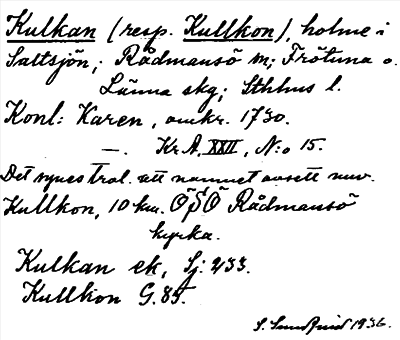 Kulkan (resp. Kullkon), holme i
Saltsjön; Rådmansö sn; Frötuna o.
Länna skg; Sthlms l.
Konl: Karen, omkr. 1730.
—. Kr A, XXII, N:o 15.
Det synes trol. att namnet avsett nuv.
Kullkon, 10 km. ÖSÖ Rådmansö
kyrka.
Kulkan ek, Sj: 233.
Kullkon G. 85.
S. 1936.